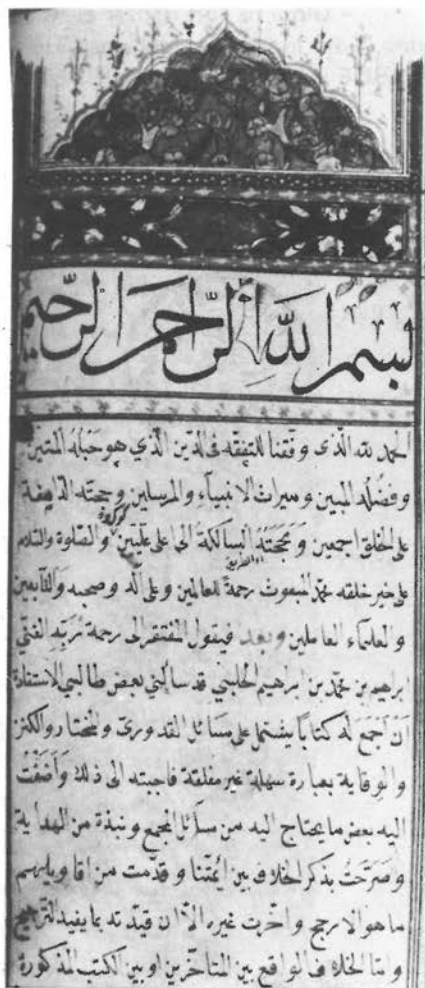 بسم الله الرّحمن الرّحيم
الحمد لله الّذى وفّقنا للتفقّه فى الدّين الّذي هو حَبْلهُ المَتين
وفضْلُه المبين وميراث الانبياءِ والمرسلين وحجته الدّامغة
على الخلق اجمعين وَمَحَجَّتهُ السالكة الى اعلى علّيّين والصّلوة والسّلام
على خير خلقه محمّد المبعوث رحمةً للعالمين وعلى آله وصحبه والتّابعين
والعلماء العاملين وبعد فيقول المفتقر الى رحمة ربّه الغنّي
ابراهيم بن محمّد بن ابراهيم الحلبيّ قد سألني بعض طالبي الاستفادة
اَنْ اَجْمَعَ لَهُ كتابًا يشتمل على مسَائل القدورىّ والمختار والكنز
والوقاية بعبارة سهلة غير مغلقة فاجبته الى ذلك وَاَضَفْتُ
اليه بعض ما يحتاج اليه من مسآئل المجمع ونبذة من الهداية
وصَرّحتُ بذكر الخلاف بين ائمّتنا وقدّمت من اقاويلهم
ما هو الارجح واخّرت غيره الّا ان قيّدته بما يفيد التّرجيح
وامّا الخلاف الواقع بين المتأخّرين او بين الكتب المذكورة